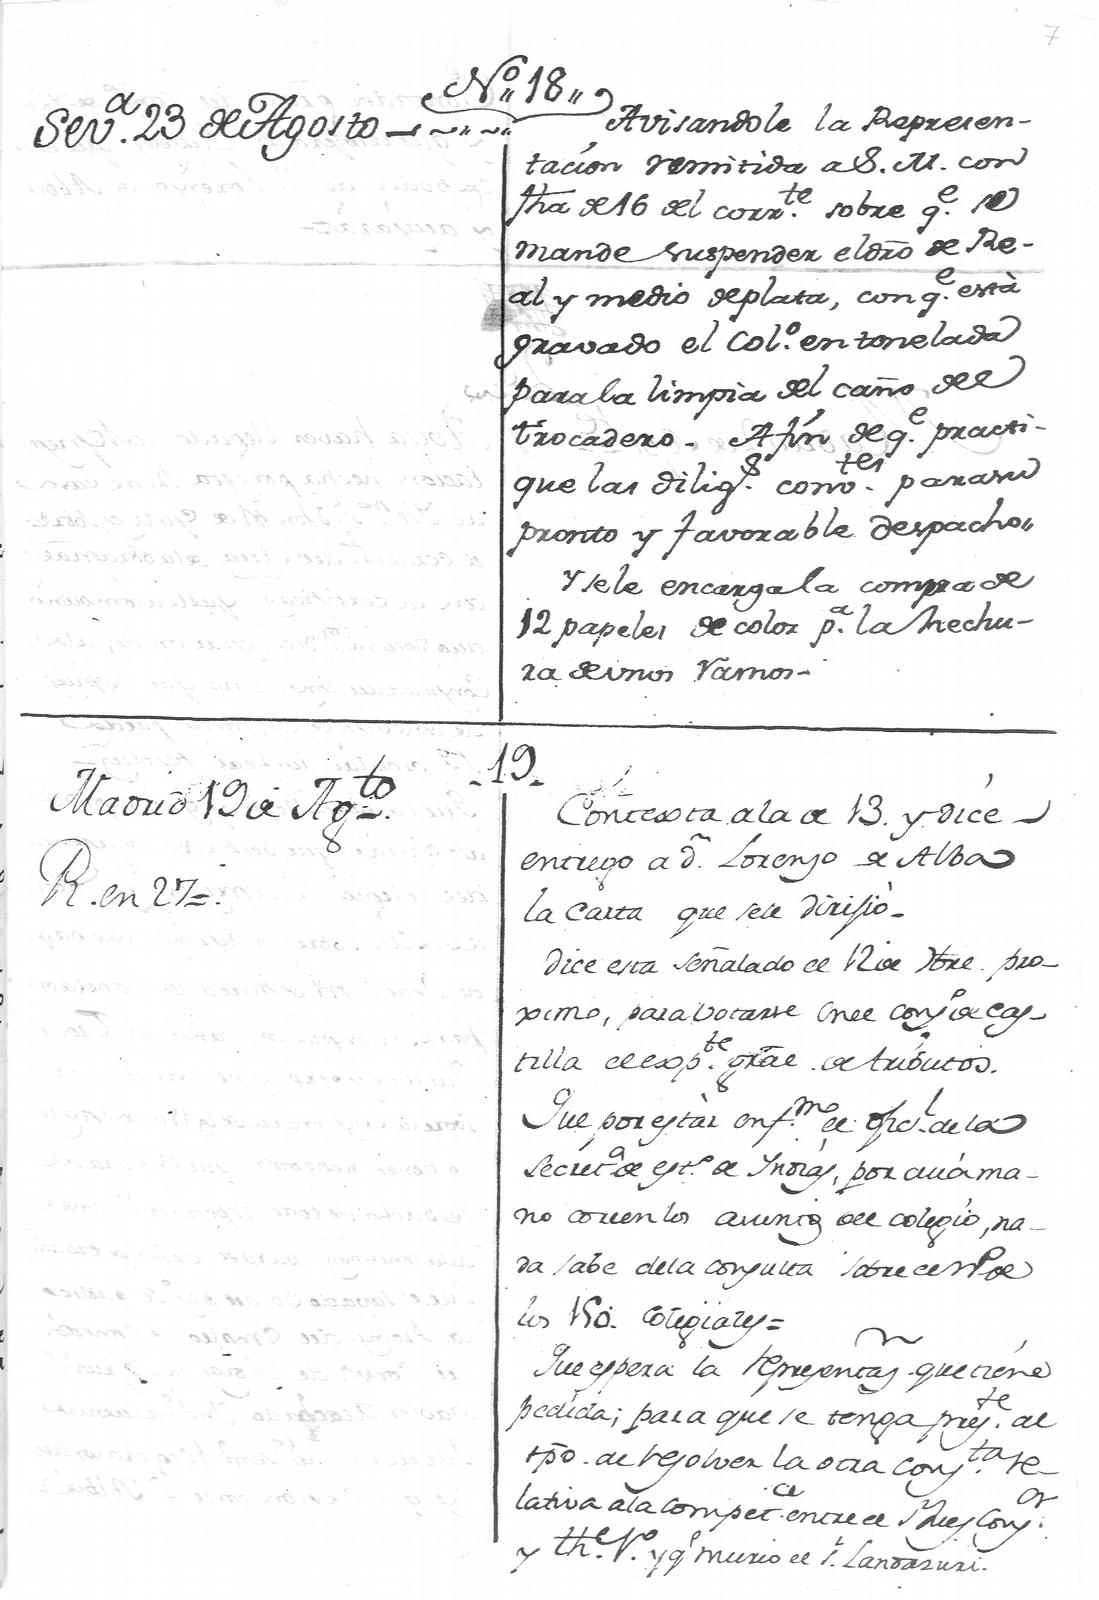 7
Nº 18
Sev.ª 23 de Agosto
Avisandole la Represen-
tacion remitida a S. M. con
fha de 16 del corr.te sobre q.e se
mande suspender el dro de Re-
al y medio de plata, con q.e està
gravado el Col.º en tonelada
para la limpia del caño del
trocadero. Afin de q.e practi-
que las dilig.s conv.tes para su
pronto y favorable despacho,,
Y sele encarga la compra de
12 papeles de color p.ª la hechu-
ra de unos Ramos.
19.
Madrid 19 de Ag.to
R. en 27.
Contexta ala de 13. y dice
entrego a d.n Lorenzo de Alba
la Carta que sele dirisio.
Dice esta señalado el 12 de Xbre. pro-
ximo, para votarse en el cons.º de Cas-
tilla el exp.te gral. de tributos.
Que por estàr enf.mo el ofic.l de la
Secret.a de est.º de Indias, por cuia ma-
no corren los asuntos del colegio, na-
da sabe dela consulta sobre el nº de
los 150. Colegiales=
Que espera la Representas.n que tiene
pedida; para que se tenga pres.te al
tpo. de resolver la otra cons.ta re-
lativa ala compet.cia entre el Jues Cons.or
y the.º y q.e murio el S. Landazuri.